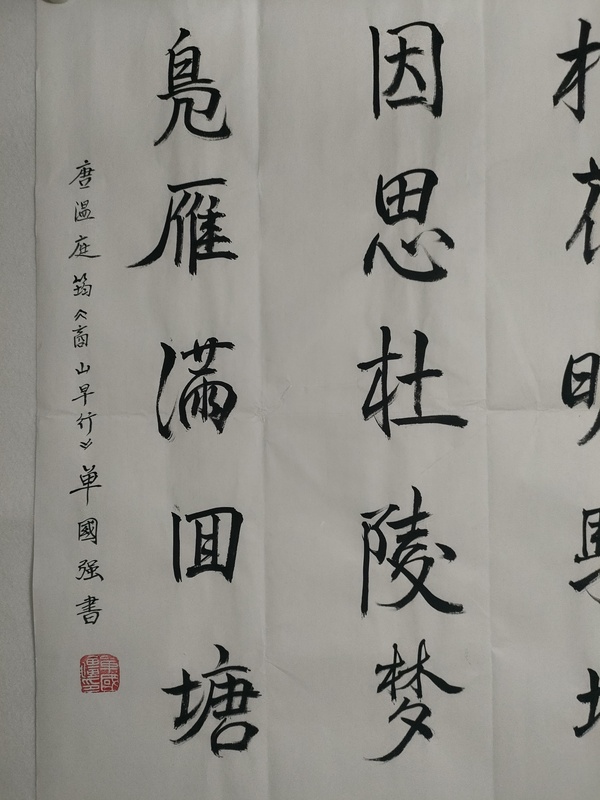 因思杜陵梦
凫雁满回塘
唐温庭筠《商山早行》单國强書